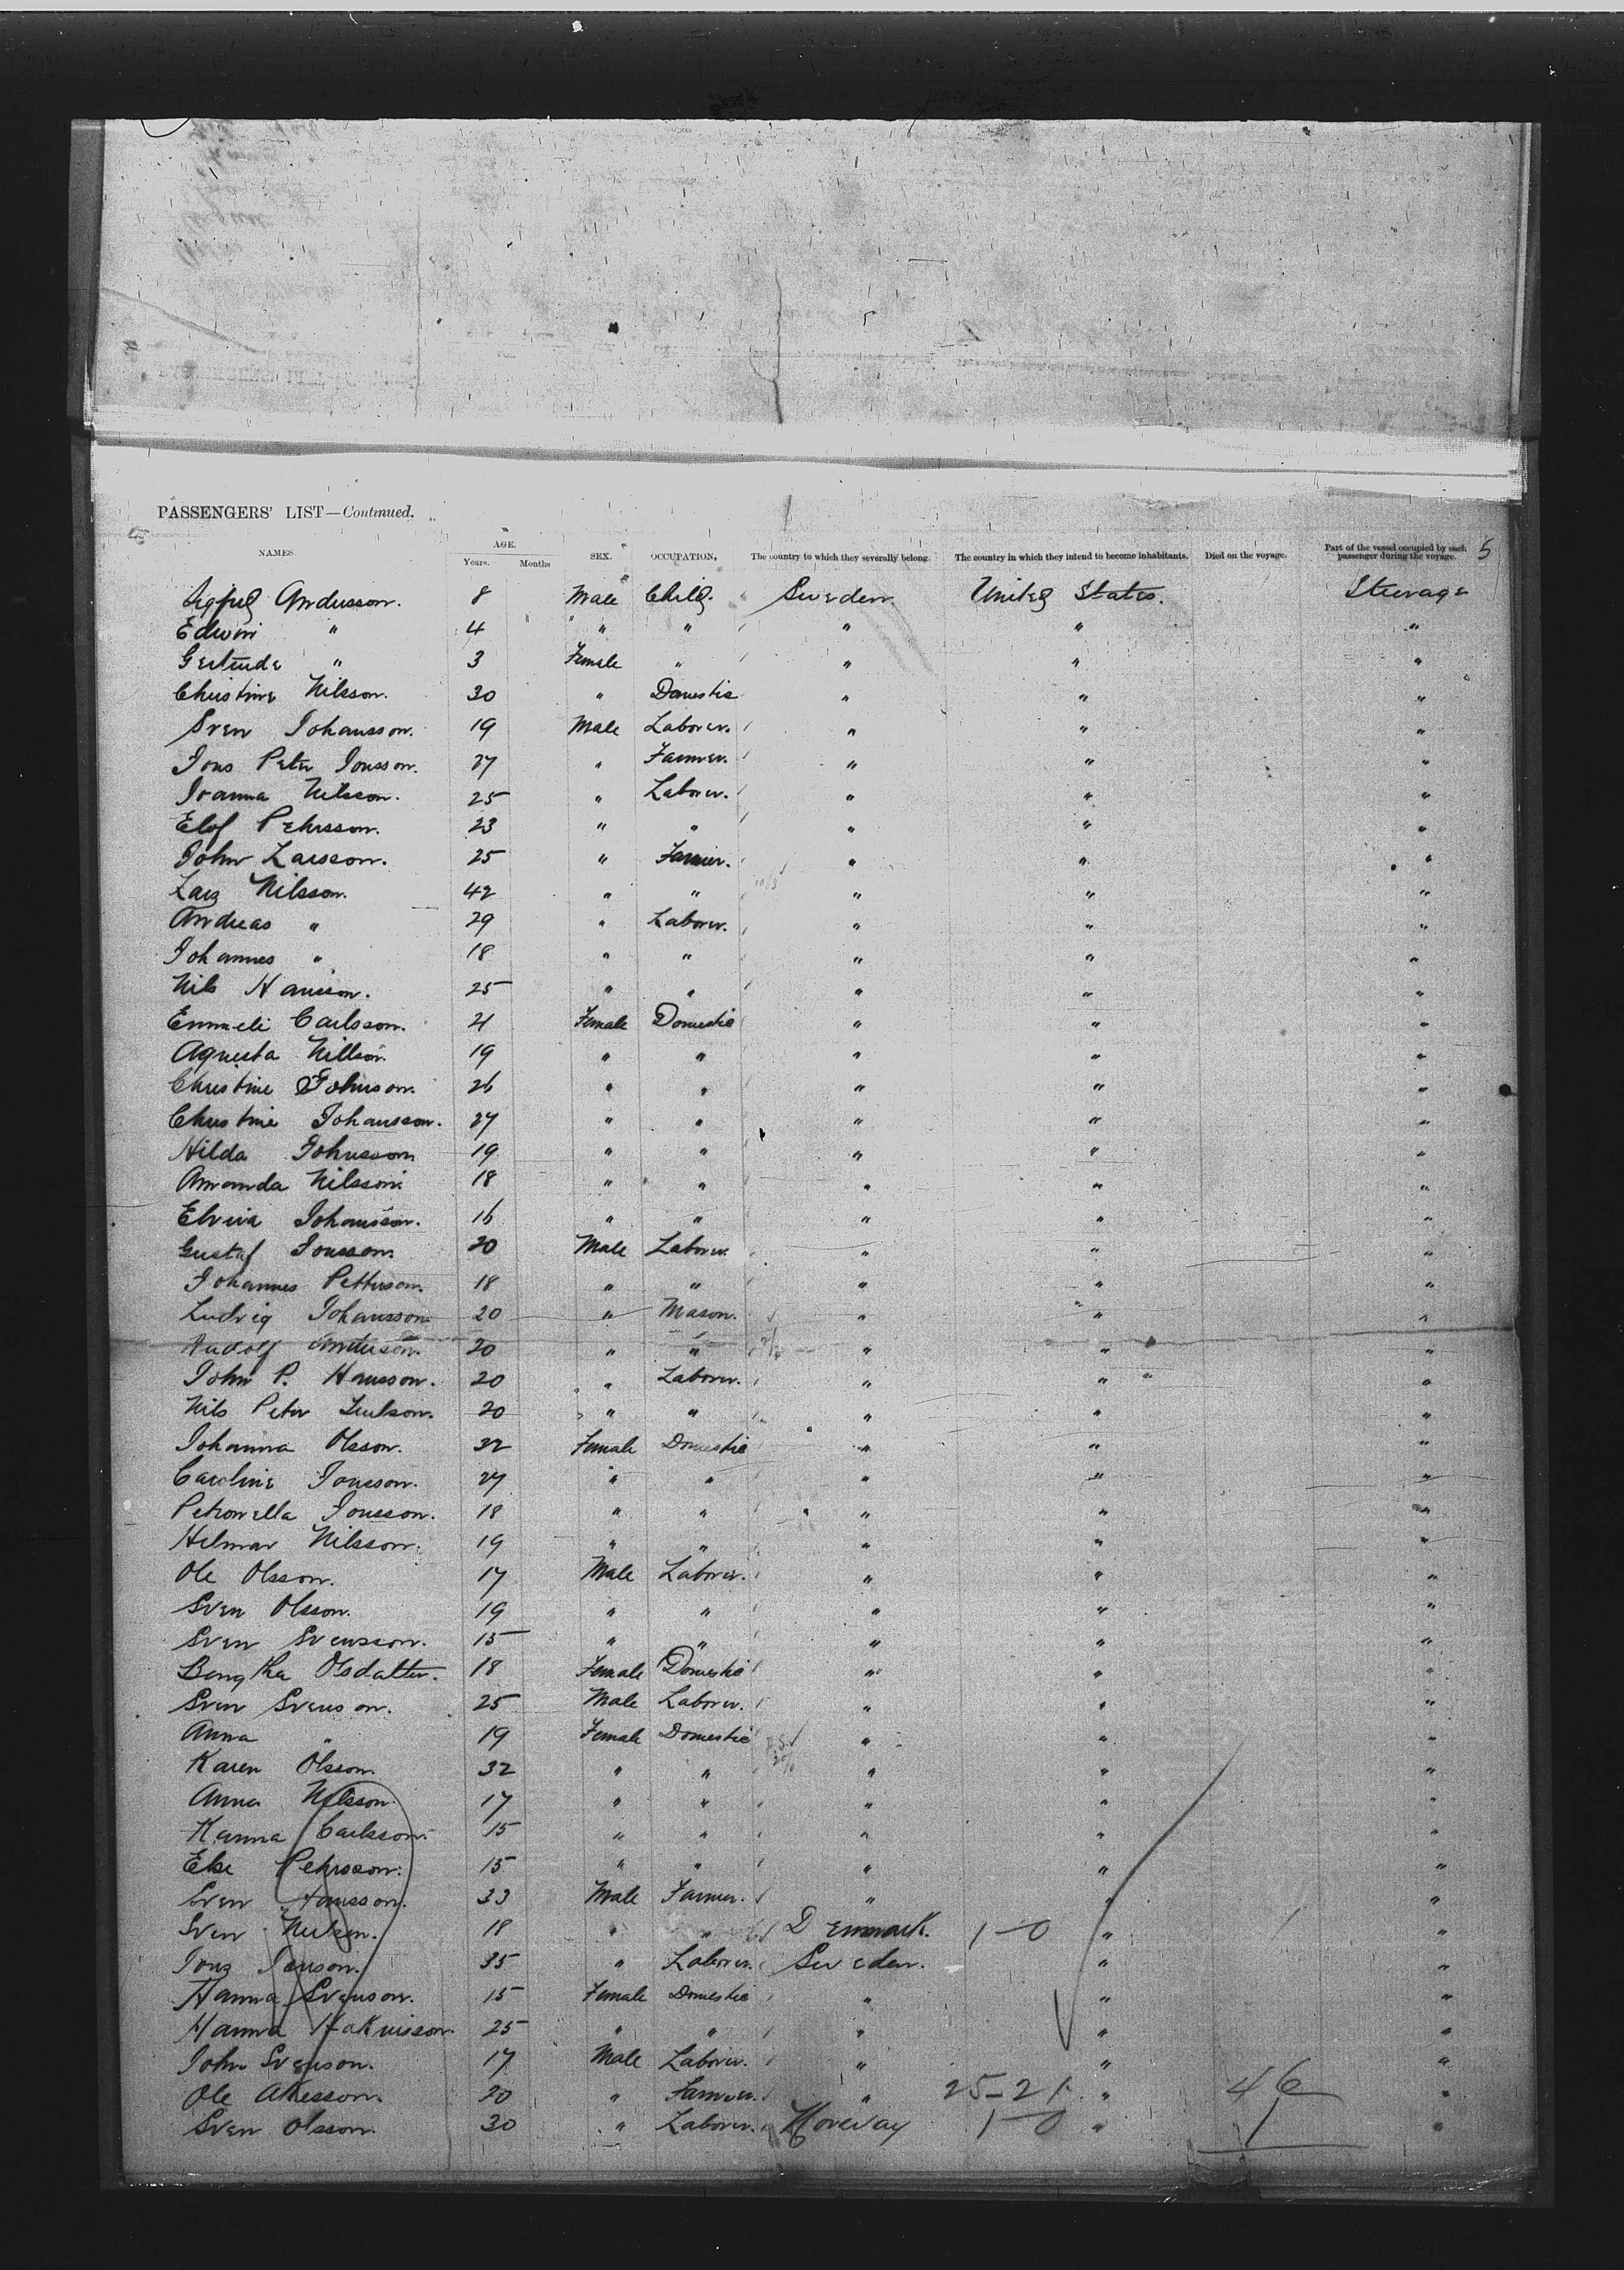 PASSENGERS' LIST—Continued.
NAMES AGE. Years. Months SEX. OCCUPATION, The country to which they severally belong. The country in which they intend to become inhabitants. Died on the voyage. Part of the vessel occupied by each passenger during the voyage. 5
Andersson. 8 Male Child. Sweden. United States. Steerage
Edwin " 4 " " " " "
Gertrude " 3 Female " " " "
Christine Nilsson. 30 " Domestic " " "
Sven Johansson. 19 Male Laborer. " " "
Jons Peter Jonsson. 27 " Farmer. " " "
Joanna Nilsson. 25 " Laborer. " " "
Elof Pehrsson. 23 " " " " "
John Larsson. 25 " Farmer. " " "
Lars Nilsson. 42 " " " " "
Andreas " 29 " Laborer. " " "
Johannes " 18 " " " " "
Nils Hansson. 25 " " " " "
Emmeli Carlsson. 21 Female Domestic " " "
Agusta Nillson. 19 " " " " "
Christine Johnson. 26 " " " " "
Christine Johansson. 27 " " " " "
Hilda Johnsson 19 " " " " "
Amanda Nilsson. 18 " " " " "
Elvira Johansson. 16 " " " " "
Gustaf Jonsson. 20 Male Laborer " " "
Johannes Petterson. 18 " " " " "
Ludvig Johansson 20 " Mason. " " "
Rudolf Anderson. 20 " " " " "
John P. Hansson. 20 " Laborer. " " "
Nils Peter 20 " " " " "
Johanna Olsson. 32 Female Domestic " " "
Caroline Jonsson. 27 " " " " "
Petronella Jonsson. 18 " " " " "
Helmar Nilsson. 19 " " " " "
Ole Olsson. 17 Male Laborer. " " "
Sven Olsson. 19 " " " " "
Sven Svensson. 15 " " " " "
Bengtha Olsdatter. 18 Female Domestic " " "
Sven Svenson. 25 Male Laborer. " " "
Anna " 19 Female Domestic " " "
Karen Olsson. 32 " " " " "
Anna Nilsson. 17 " " " " "
Hanna Carlsson. 15 " " " " "
Else Pehrsson. 15 " " " " "
Sven Hansson. 33 Male Farmer. " " "
Sven Nilsen. 18 " " Denmark. 1-0 " "
Jons 35 " Laborer. Sweden. " "
Hanna Svenson. 15 Female Domestic " " "
Hanna Haknisson. 25 " " " " "
John Svenson. 17 Male Laborer. " " "
Ole Akesson. 20 " Farmer. " 25-21 " 46 "
Sven Olsson. 30 " Laborer. Norway 1-0 " 1 "